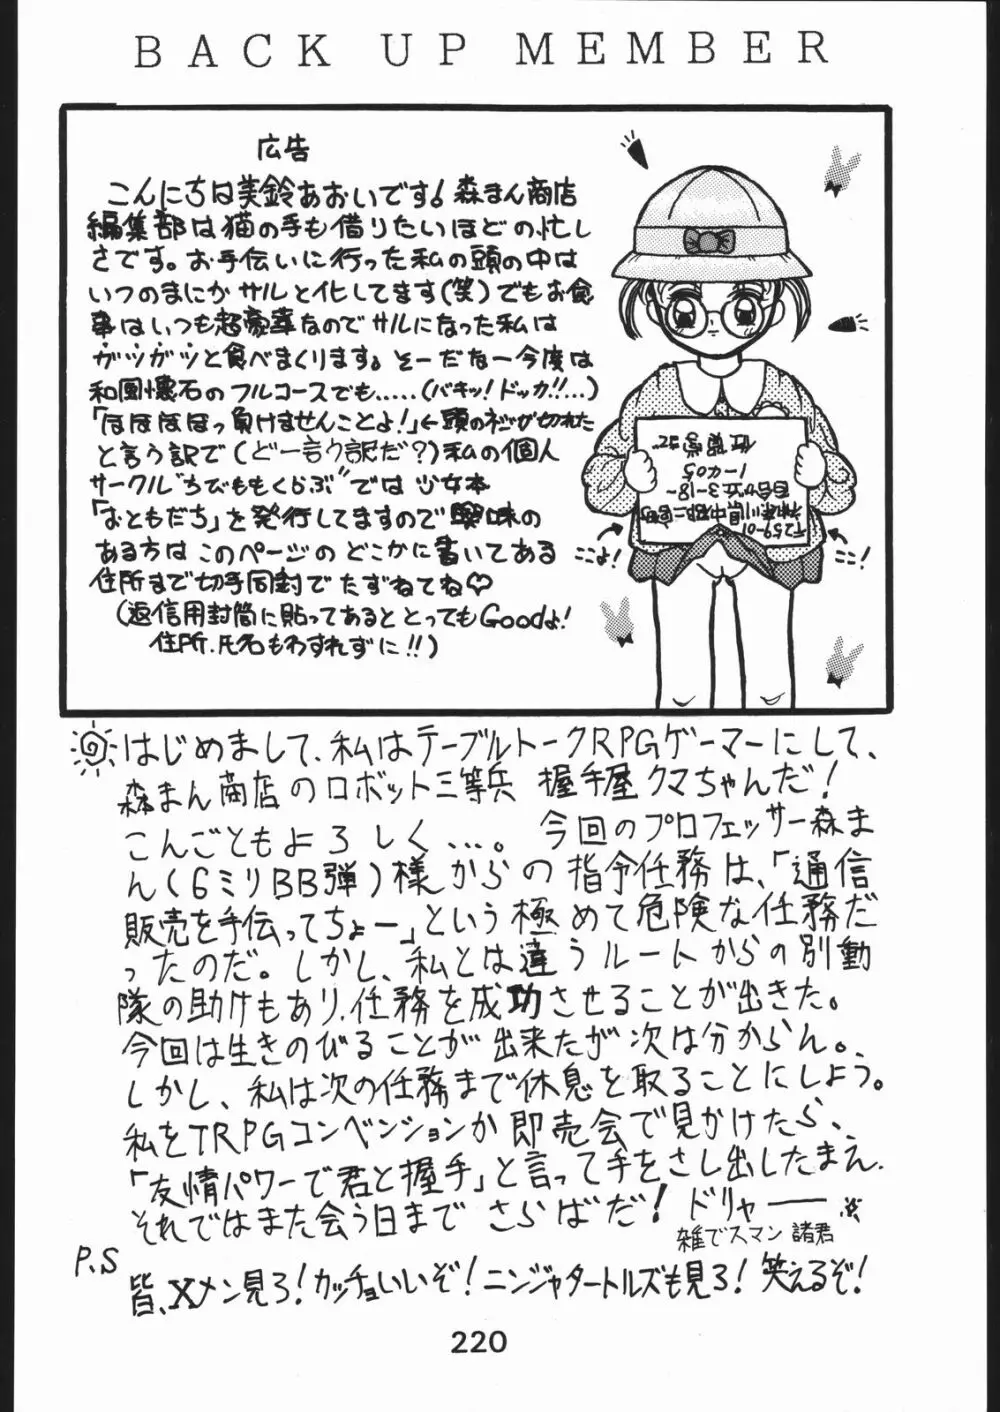 BACK UP MEMBER
広告
こんにちは美鈴あおいです! 森まん商店
編集部は猫の手も借りたいほどの忙し
さです。お手伝いに行った私の頭の中は
いつのまにかサルと化してます(笑)でもお食
事はいつも超豪華なのでサルになった私は
ガツガツと食べまくります。そーだなー今度は
和風懐石のフルコースでも.....(バキッ!ドッカ!!...)
「ほほほほっ負けませんことよ!」←頭のネジが切れた
と言う訳で(どー言う訳だ?)私の個人
サークル"ちびももくらぶ"では少女本
「おともだち」を発行してますので興味の
ある方はこのページのどこかに書いてある
住所まで切手同封でたずねてね♡
(返信用封筒に貼ってあるととってもGoodよ!
住所.氏名もわすれずに!!)
ここよ!
ここ!
はじめまして、私はテーブルトークRPGゲーマーにして、
森まん商店のロボット三等兵 握手屋クマちゃんだ!
こんごともよろしく...。 今回のプロフェッサー森ま
ん(6ミリBB弾)様からの指令任務は、「通信
販売を手伝ってちょー」という極めて危険な任務だ
ったのだ。しかし、私とは違うルートからの別動
隊の助けもあり、任務を成功させることが出きた。
今回は生きのびることが出来たが次は分からん。
しかし、私は次の任務まで休息を取ることにしよう。
私をTRPGコンベンションか即売会で見かけたら、
「友情パワーで君と握手」と言って手をさし出したまえ.
それではまた会う日まで さらばだ! ドリャー
雑でスマン 諸君
P.S
皆、Xメン見ろ!カッチョいいぞ!ニンジャタートルズも見ろ!笑えるぞ!
220